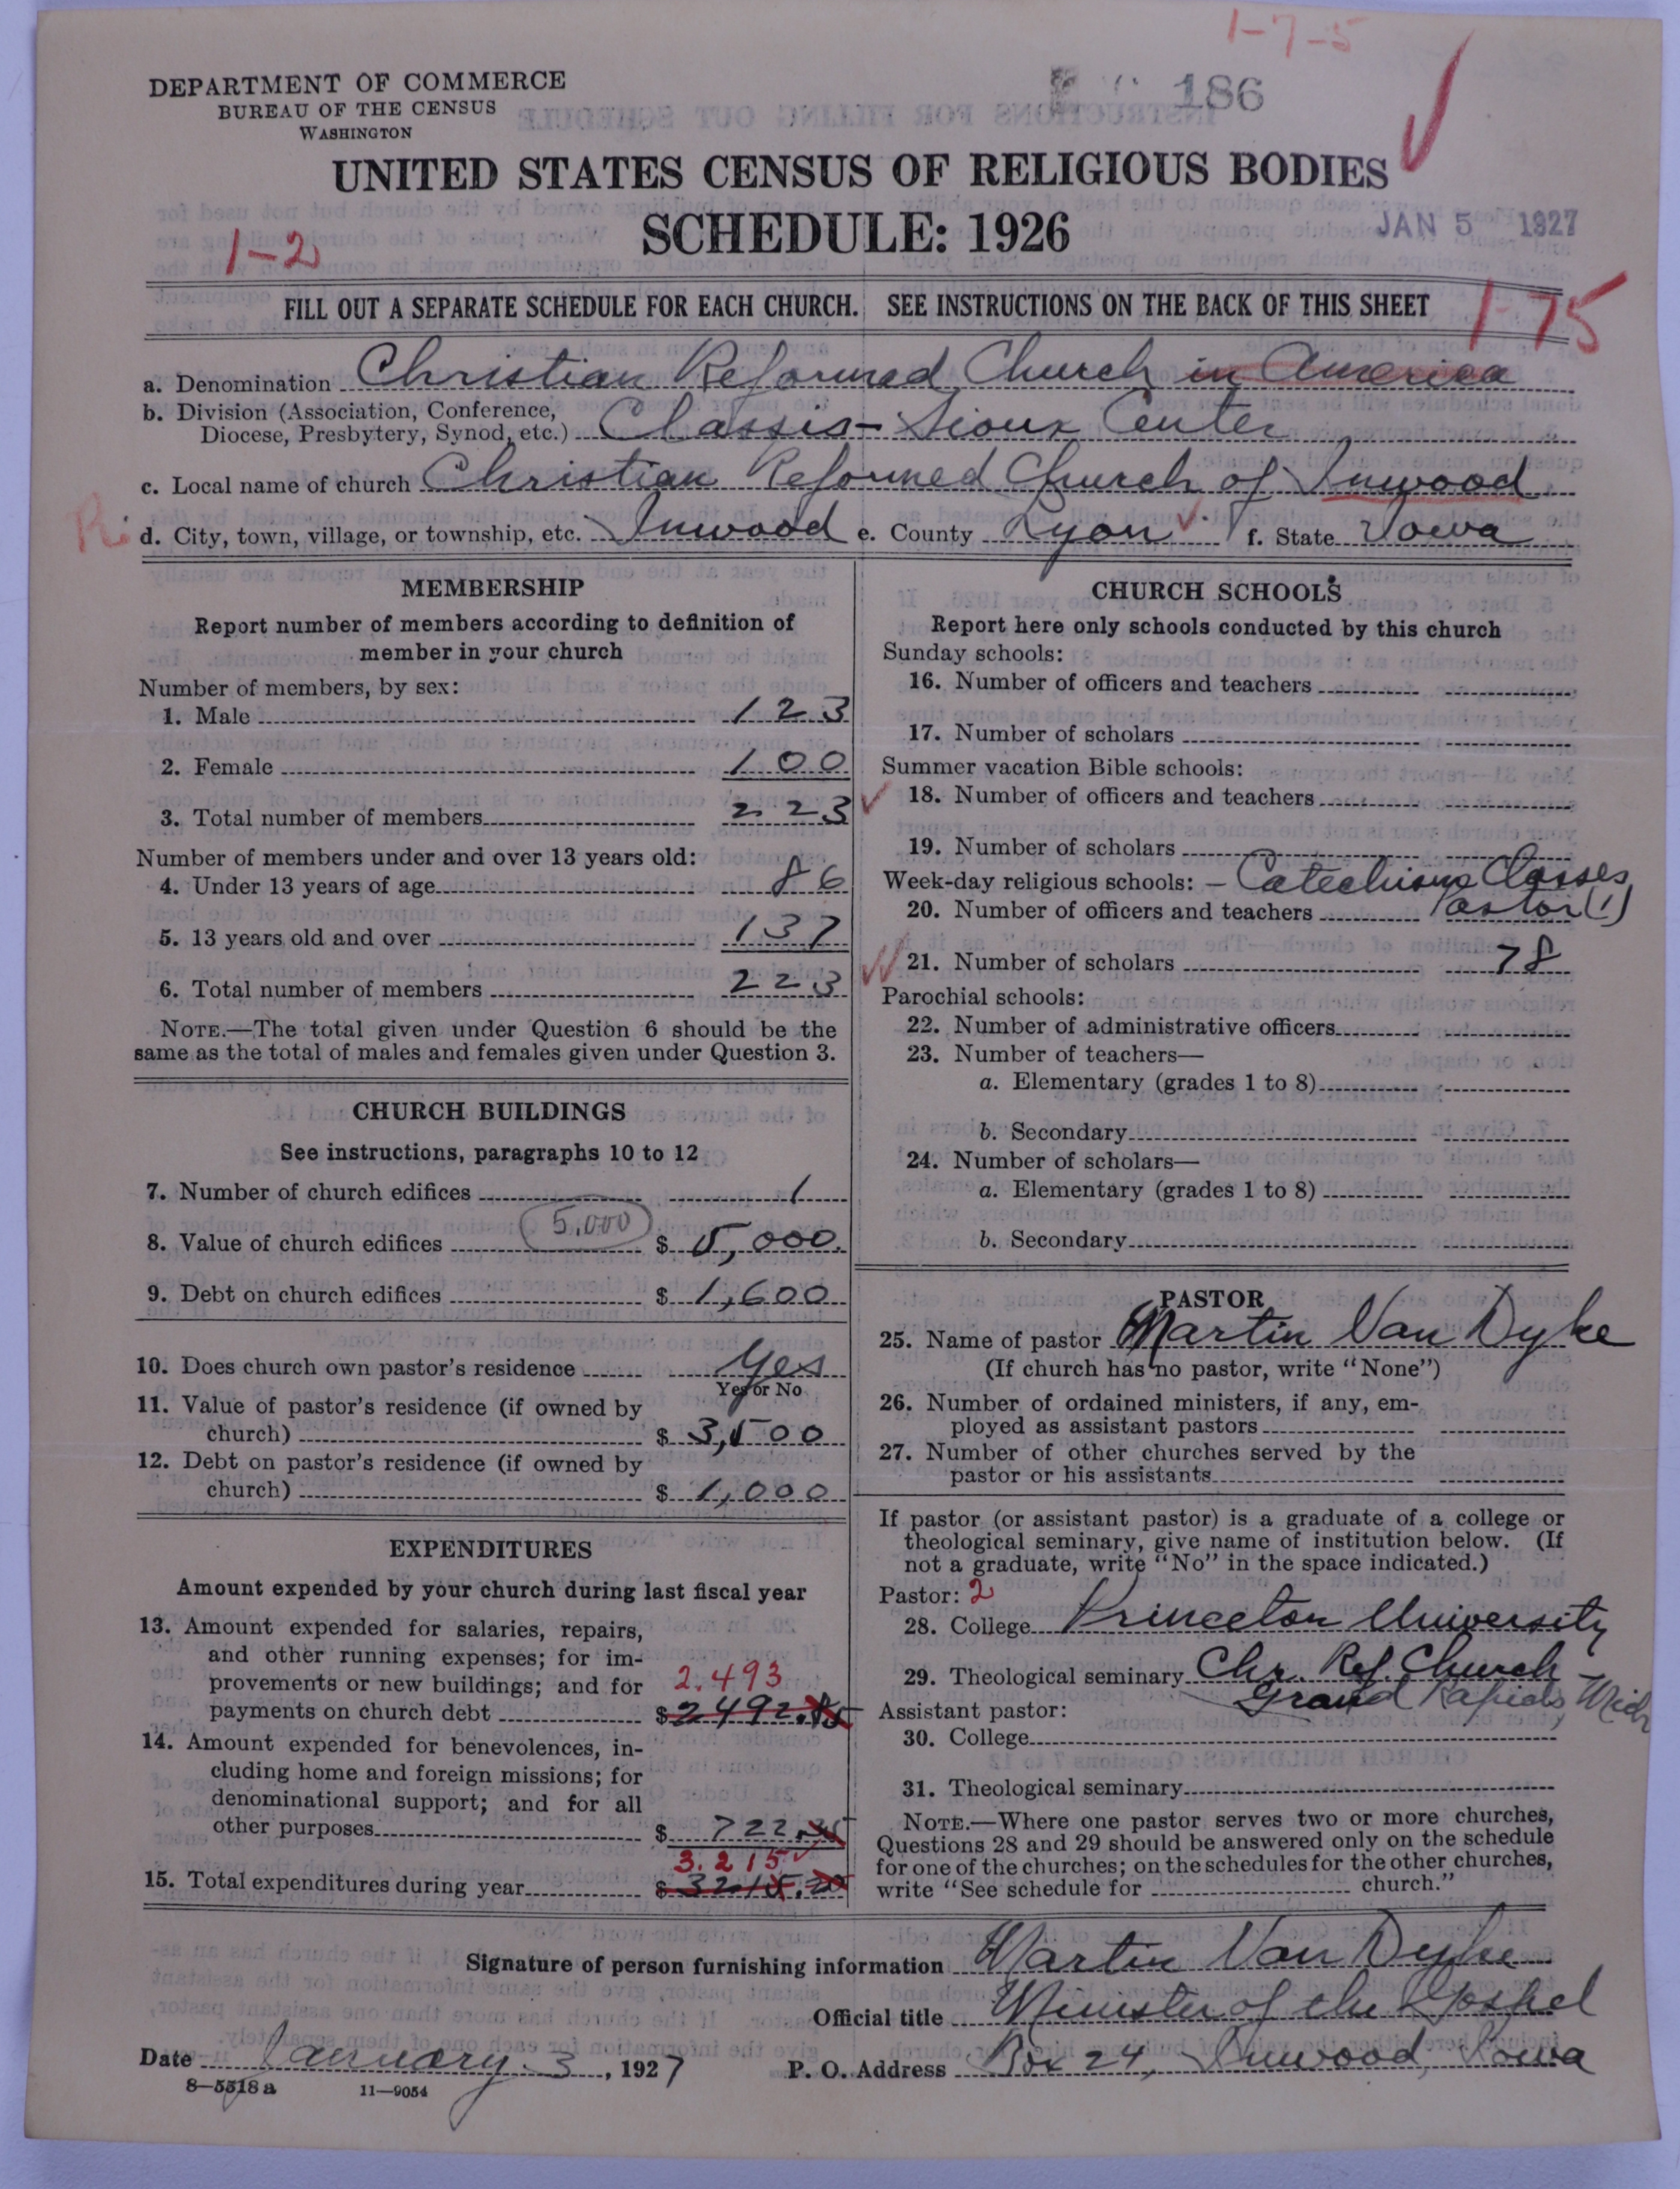 1-7-5
DEPARTMENT OF COMMERCE
BUREAU OF THE CENSUS
WASHINGTON
186
UNITED STATES CENSUS OF RELIGIOUS BODIES
SCHEDULE: 1926
JAN 5 1927
1-2
FILL OUT A SEPARATE SCHEDULE FOR EACH CHURCH. SEE INSTRUCTIONS ON THE BACK OF THIS SHEET
1-75
a. Denomination Christian Reformed Church in America
b. Division (Association, Conference,
Diocese, Presbytery, Synod, etc.) Classis - Sioux Center
c. Local name of church Christian Reformed Church of Inwood
d. City, town, village, or township, etc. Inwood e. County Lyon f. State Iowa
MEMBERSHIP
Report number of members according to definition of
member in your church
Number of members, by sex:
1. Male 123
2. Female 100
3. Total number of members 223
Number of members under and over 13 years old:
4. Under 13 years of age 86
5. 13 years old and over 137
6. Total number of members 223
NOTE.—The total given under Question 6 should be the
same as the total of males and females given under Question 3.
CHURCH BUILDINGS
See instructions, paragraphs 10 to 12
7. Number of church edifices 1
5,000
8. Value of church edifices $ 5,000.
9. Debt on church edifices $ 1,600
10. Does church own pastor's residence Yes
Yes or No
11. Value of pastor's residence (if owned by
church) $ 3,500
12. Debt on pastor's residence (if owned by
church) $ 1,000
EXPENDITURES
Amount expended by your church during last fiscal year
13. Amount expended for salaries, repairs,
and other running expenses; for im-
provements or new buildings; and for 2.493
payments on church debt $ 2492.85
14. Amount expended for benevolences, in-
cluding home and foreign missions; for
denominational support; and for all
other purposes $ 722.
3.215
15. Total expenditures during year $ 3215.20
CHURCH SCHOOLS
Report here only schools conducted by this church
Sunday schools:
16. Number of officers and teachers
17. Number of scholars
Summer vacation Bible schools:
18. Number of officers and teachers
19. Number of scholars
Week-day religious schools: - Catechism Classes
20. Number of officers and teachers Pastor (1)
21. Number of scholars 78
Parochial schools:
22. Number of administrative officers
23. Number of teachers—
a. Elementary (grades 1 to 8)
b. Secondary
24. Number of scholars—
a. Elementary (grades 1 to 8)
b. Secondary
PASTOR
25. Name of pastor Martin Van Dyke
(If church has no pastor, write "None")
26. Number of ordained ministers, if any, em-
ployed as assistant pastors
27. Number of other churches served by the
pastor or his assistants
If pastor (or assistant pastor) is a graduate of a college or
theological seminary, give name of institution below. (If
not a graduate, write "No" in the space indicated.)
Pastor: 2
28. College Princeton University
29. Theological seminary Chr. Ref. Church -
Grand Rapids Mich
Assistant pastor:
30. College
31. Theological seminary
NOTE.—Where one pastor serves two or more churches,
Questions 28 and 29 should be answered only on the schedule
for one of the churches; on the schedules for the other churches,
write "See schedule for church."
Signature of person furnishing information Martin Van Dyke
Official title Minister of the Gospel
Date January 3, 1927 P. O. Address Box 24, Inwood, Iowa
8-5518 a 11-9054